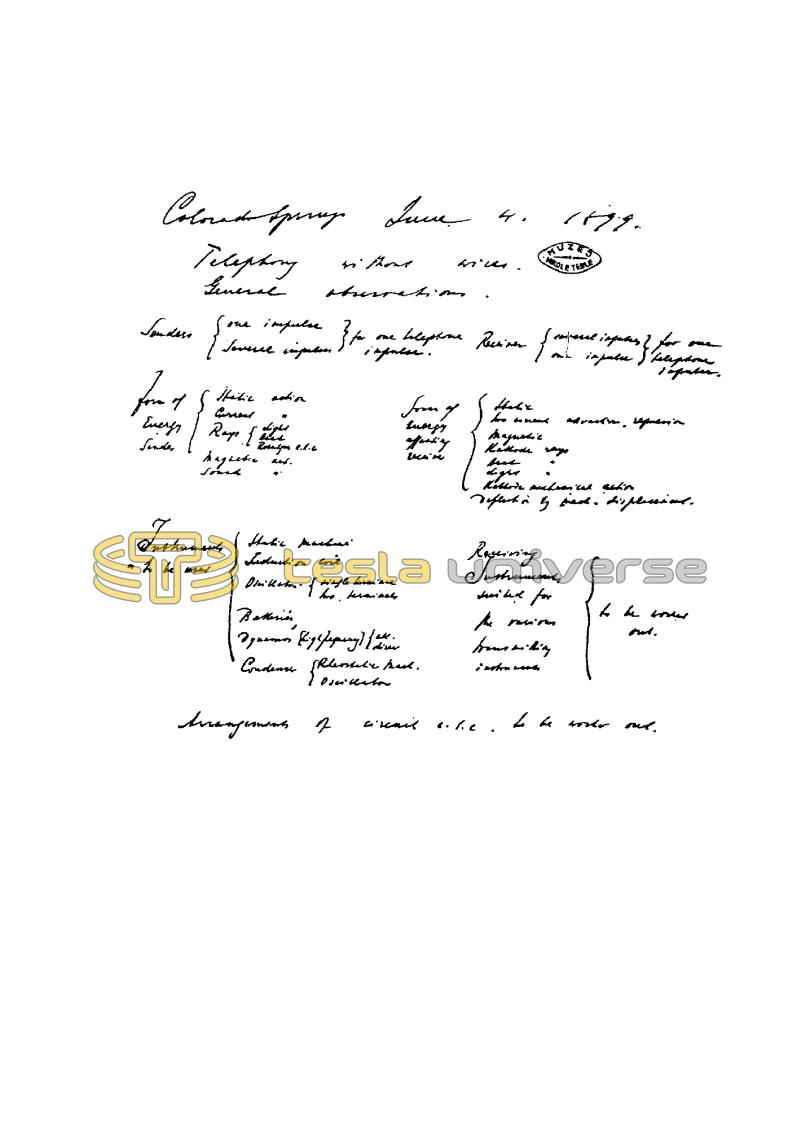 Colorado Springs June 4. 1899.
Telephony without wires.
MUZEJ
NIKOLE TESLE
General observations.
Senders { one impulse } for one telephone Receiver { several impulses } for one
Several impulses impulse. one impulse telephone
impulse.
form of { Static action
Current "
Energy Rays { Light
Heat
Roentgen e.t.c
Sender
Magnetic act.
Sound "
form of { Static
Energy two current attraction, repression
affecting Magnetic
receiver Kathode rays
heat "
light "
Kathode mechanical action
Deflection by mech. displacement.
Instruments { Static machine
to be used Induction coil
Oscillator { single terminal
two terminals
Batteries,
Dynamos (high frequency) { alt.
direc
Condenser { Rheostatic Mach.
Oscillator
Receiving
Instruments
suited for
the various
transmitting
instruments
} to be worked
out.
Arrangements of circuit e.t.c. to be worked out.
tesla universe